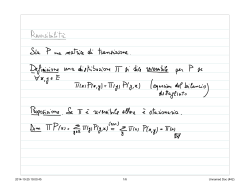 Reversibilità
Sia P una matrice di transizione.
Definizione una distribuzione π si dice reversibile per P se
∀x,y ∈ E
π(x) P(x,y) = π(y) P(y,x) (equazione del bilancio
dettagliato)
Proposizione Se π è reversibile allora è stazionaria.
Dim πP(x) = Σ π(y) P(y,x) = Σ π(x) P(x,y) = π(x)